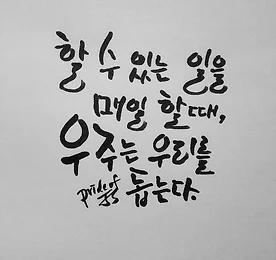 할 수 있는 일을
매일 할 때,
우주는 우리를
돕는다.
pride of